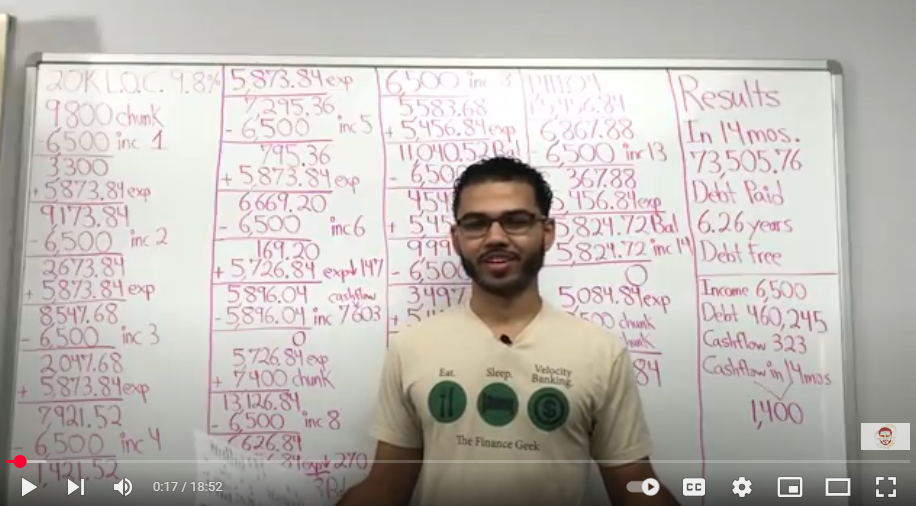 20K L.O.C. 9.8%
9800 chunk
-6,500 inc 1
3300
+5873.84 exp
9173.84
- 6,500 inc 2
2673.84
+ 5873.84 exp
8547.68
- 6,500 inc 3
2047.68
+5,873.84 exp
7,921.52
- 6,500 inc 4
1,421.52
5,873.84 exp
7,295.36
- 6,500 inc 5
795.36
+ 5,873.84 exp
6,669.20
- 6,500 inc 6
169.20
+ 5,726.84 exp↓147
5,896.04 cashflow
- 5,896.04 inc 7 603
0
5,726.84 exp
+ 7,400 chunk
13,126.84
- 6,500 inc 8
6,626.84
84 exp↓270
6,500 inc
5583.68
+ 5,456.84 exp
11,040.52 Bal
- 6,500
454
+ 545
999
- 6,500
3497
6,867.88
- 6,500 inc 13
367.88
5,456.84 exp
5,824.72 Bal
5,824.72 inc 14
0
5,084.84 exp
500 chunk
84
Results
In 14 mos.
73,505.76
Debt Paid
6.26 years
Debt Free
Income 6,500
Debt 460,245
Cashflow 323
Cashflow in 14 mos
1,400
Eat. Sleep. Velocity
Banking.
The Finance Geek
0:17 / 18:52
CC